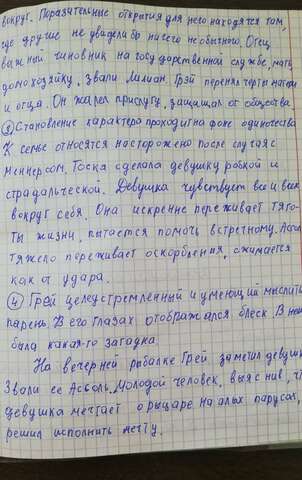 вокруг. Поразительные открытия для него находятся там,
где другие не увидели бы ничего необычного. Отец
важный чиновник на государственной службе, мать
домохозяйку, звали Лилиан. Грэй перенял черты матери
и отца. Он жалел прислугу, защищал от общества
③ Становление характера проходит на фоне одиночества
К семье относятся насторожено после случая с
Меннерсом. Тоска сделала девушку робкой и
страдальческой. Девушка чувствует все и всех
вокруг себя. Она искренне переживает тяго-
ты жизни, пытается помочь встречному. Ассоль
тяжело переживает оскорбления, сжимается
как от удара.
④ Грэй целеустремленный и умеющий мыслить
парень. В его глазах отображался блеск. В нем
была какая-то загадка.
На вечерней рыбалке Грэй заметил девушку
Звали ее Ассоль. Молодой человек, выяснив, что
девушка мечтает о рыцаре на алых парусах,
решил исполнить мечту.